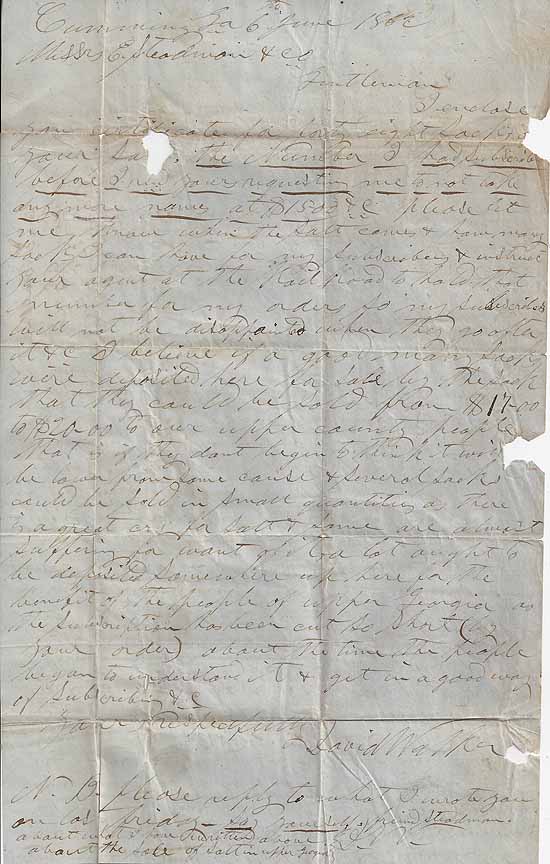 Cumming Ga 6th June 1862
Missrs E Steadman & co
Gentleman
I enclose
you certificate for forty eight Sacks
your Salt. the Number I had Subscribed
before I rec yours requesting me to not take
any more names at $15.00 &C please let
me know when the Salt comes & how many
Sacks I can have for my Subscribers & instruct
your agent at the Rail Road to hold that
number for my orders so my Subscribers
will not be disappointed when they go after
it &C I believe if a good many Sacks
were deposited here for Sale by the Sack
that they could be Sold from $17.00
to $20.00 to our upper county people
that is if they dont begin to think it will
be lower from some cause & Several Sacks
could be Sold in Small quantities as there
is a great cry for Salt & some are almost
Suffering for want of it a lot ought to
be deposited Somewhere up here for the
benefit of the people of upper Georgia as
the Subscription has been cut So Short (by
your order) about the time the people
began to understand it & get in a good way
of Subscribing &C
Your Respectfully
David Walker
N. B. Please reply to what I wrote you
on last friday by yourself friend Steadman
about what I have written above
about the Sale of Salt in upper